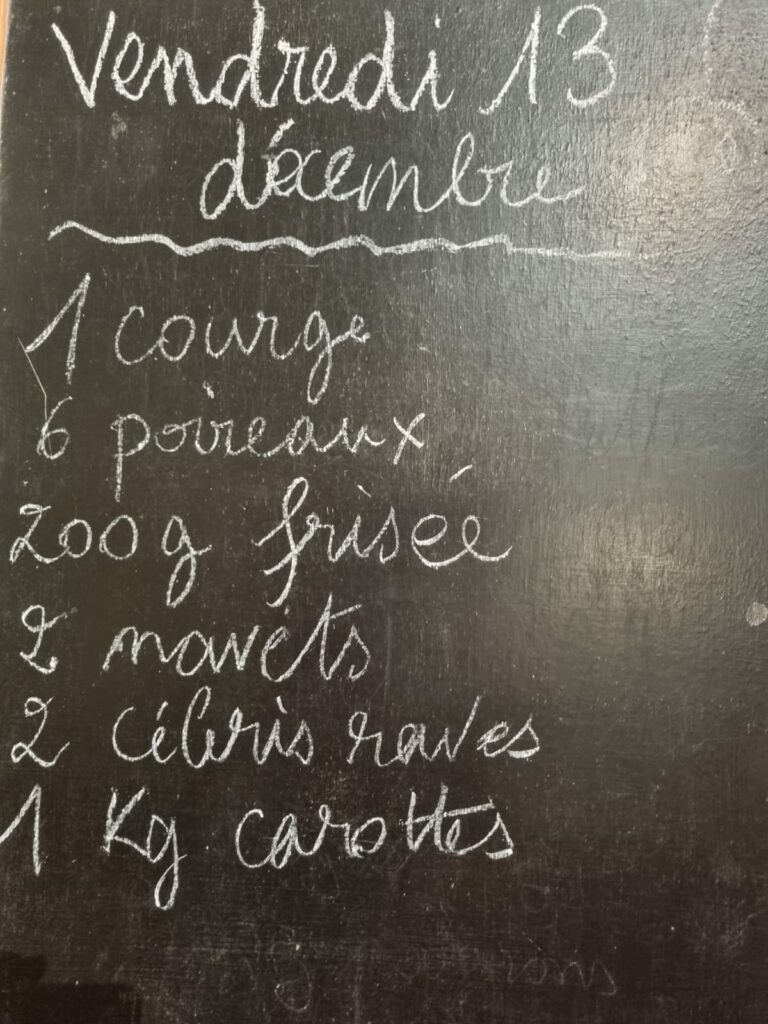 Vendredi 13
décembre
1 courge
6 poireaux
200g frisée
2 navets
2 céleris raves
1 Kg carottes